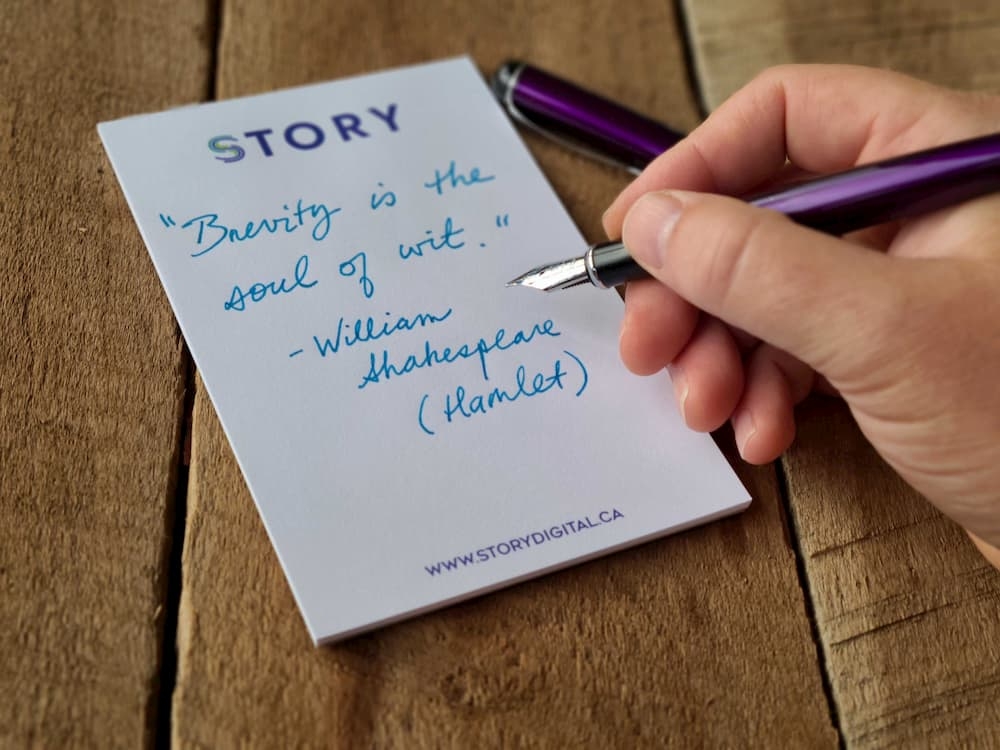 STORY
"Brevity is the
soul of wit."
- William
Shakespeare
(Hamlet)
WWW.STORYDIGITAL.CA